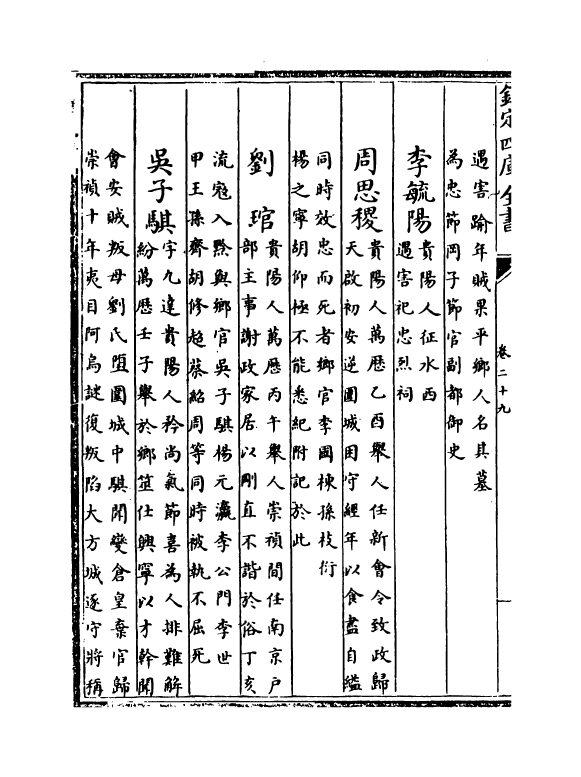 欽定四庫全書
卷二十九
遇害踰年賊果平鄉人名其墓
為忠節岡子節官副都御史
李毓陽貴陽人征水西
遇害祀忠烈祠
周思稷貴陽人萬歷乙酉舉人任新會令致政歸
天啟初安逆圍城困守經年以食盡自縊
同時效忠而死者鄉官李國棟孫枝衍
楊之寧胡仰極不能悉紀附記於此
劉琯貴陽人萬歷丙午舉人崇禎間任南京戶
部主事謝政家居以剛直不諧於俗丁亥
流寇入黔與鄉官吳子騏楊元瀛李公門李世
甲王孫齊胡修趙蔡紹周等同時被執不屈死
吳子騏字九逵貴陽人矜尚氣節喜為人排難解
紛萬歷壬子舉於鄉筮仕興寧以才幹聞
會安賊叛母劉氏墮圍城中騏聞變倉皇棄官歸
崇禎十年夷目阿烏謎復叛陷大方城逐守將稱